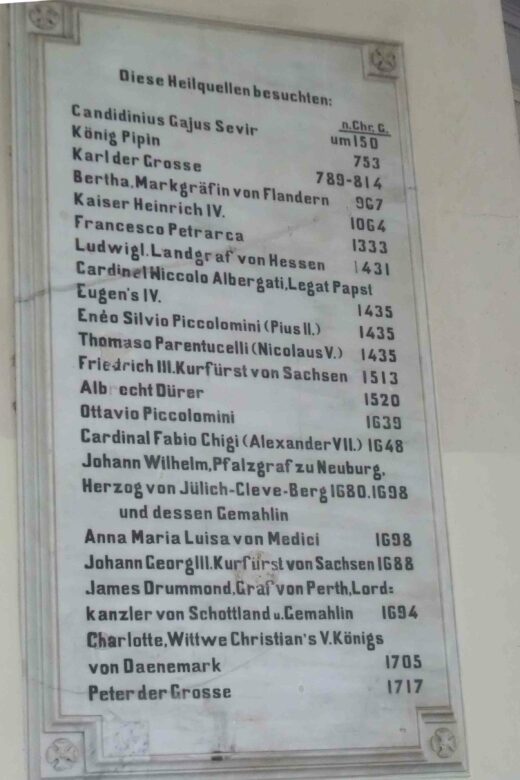 Diese Heilquellen besuchten:
n.Chr.G.
Candidinius Gajus Sevir um 150
König Pipin 753
Karl der Grosse 789-814
Bertha, Markgräfin von Flandern 967
Kaiser Heinrich IV. 1064
Francesco Petrarca 1333
Ludwig I. Landgraf von Hessen 1431
Cardinel Niccolo Albergati, Legat Papst
Eugen's IV. 1435
Enéo Silvio Piccolomini (Pius II.) 1435
Thomaso Parentucelli (Nicolaus V.) 1435
Friedrich III. Kurfürst von Sachsen 1513
Albrecht Dürer 1520
Ottavio Piccolomini 1639
Cardinal Fabio Chigi (Alexander VII.) 1648
Johann Wilhelm, Pfalzgraf zu Neuburg,
Herzog von Jülich-Cleve-Berg 1680.1698
und dessen Gemahlin
Anna Maria Luisa von Medici 1698
Johann Georg III. Kurfürst von Sachsen 1688
James Drummond, Graf von Perth, Lord=
kanzler von Schottland u. Gemahlin 1694
Charlotte, Wittwe Christian's V. Königs
von Daenemark 1705
Peter der Grosse 1717